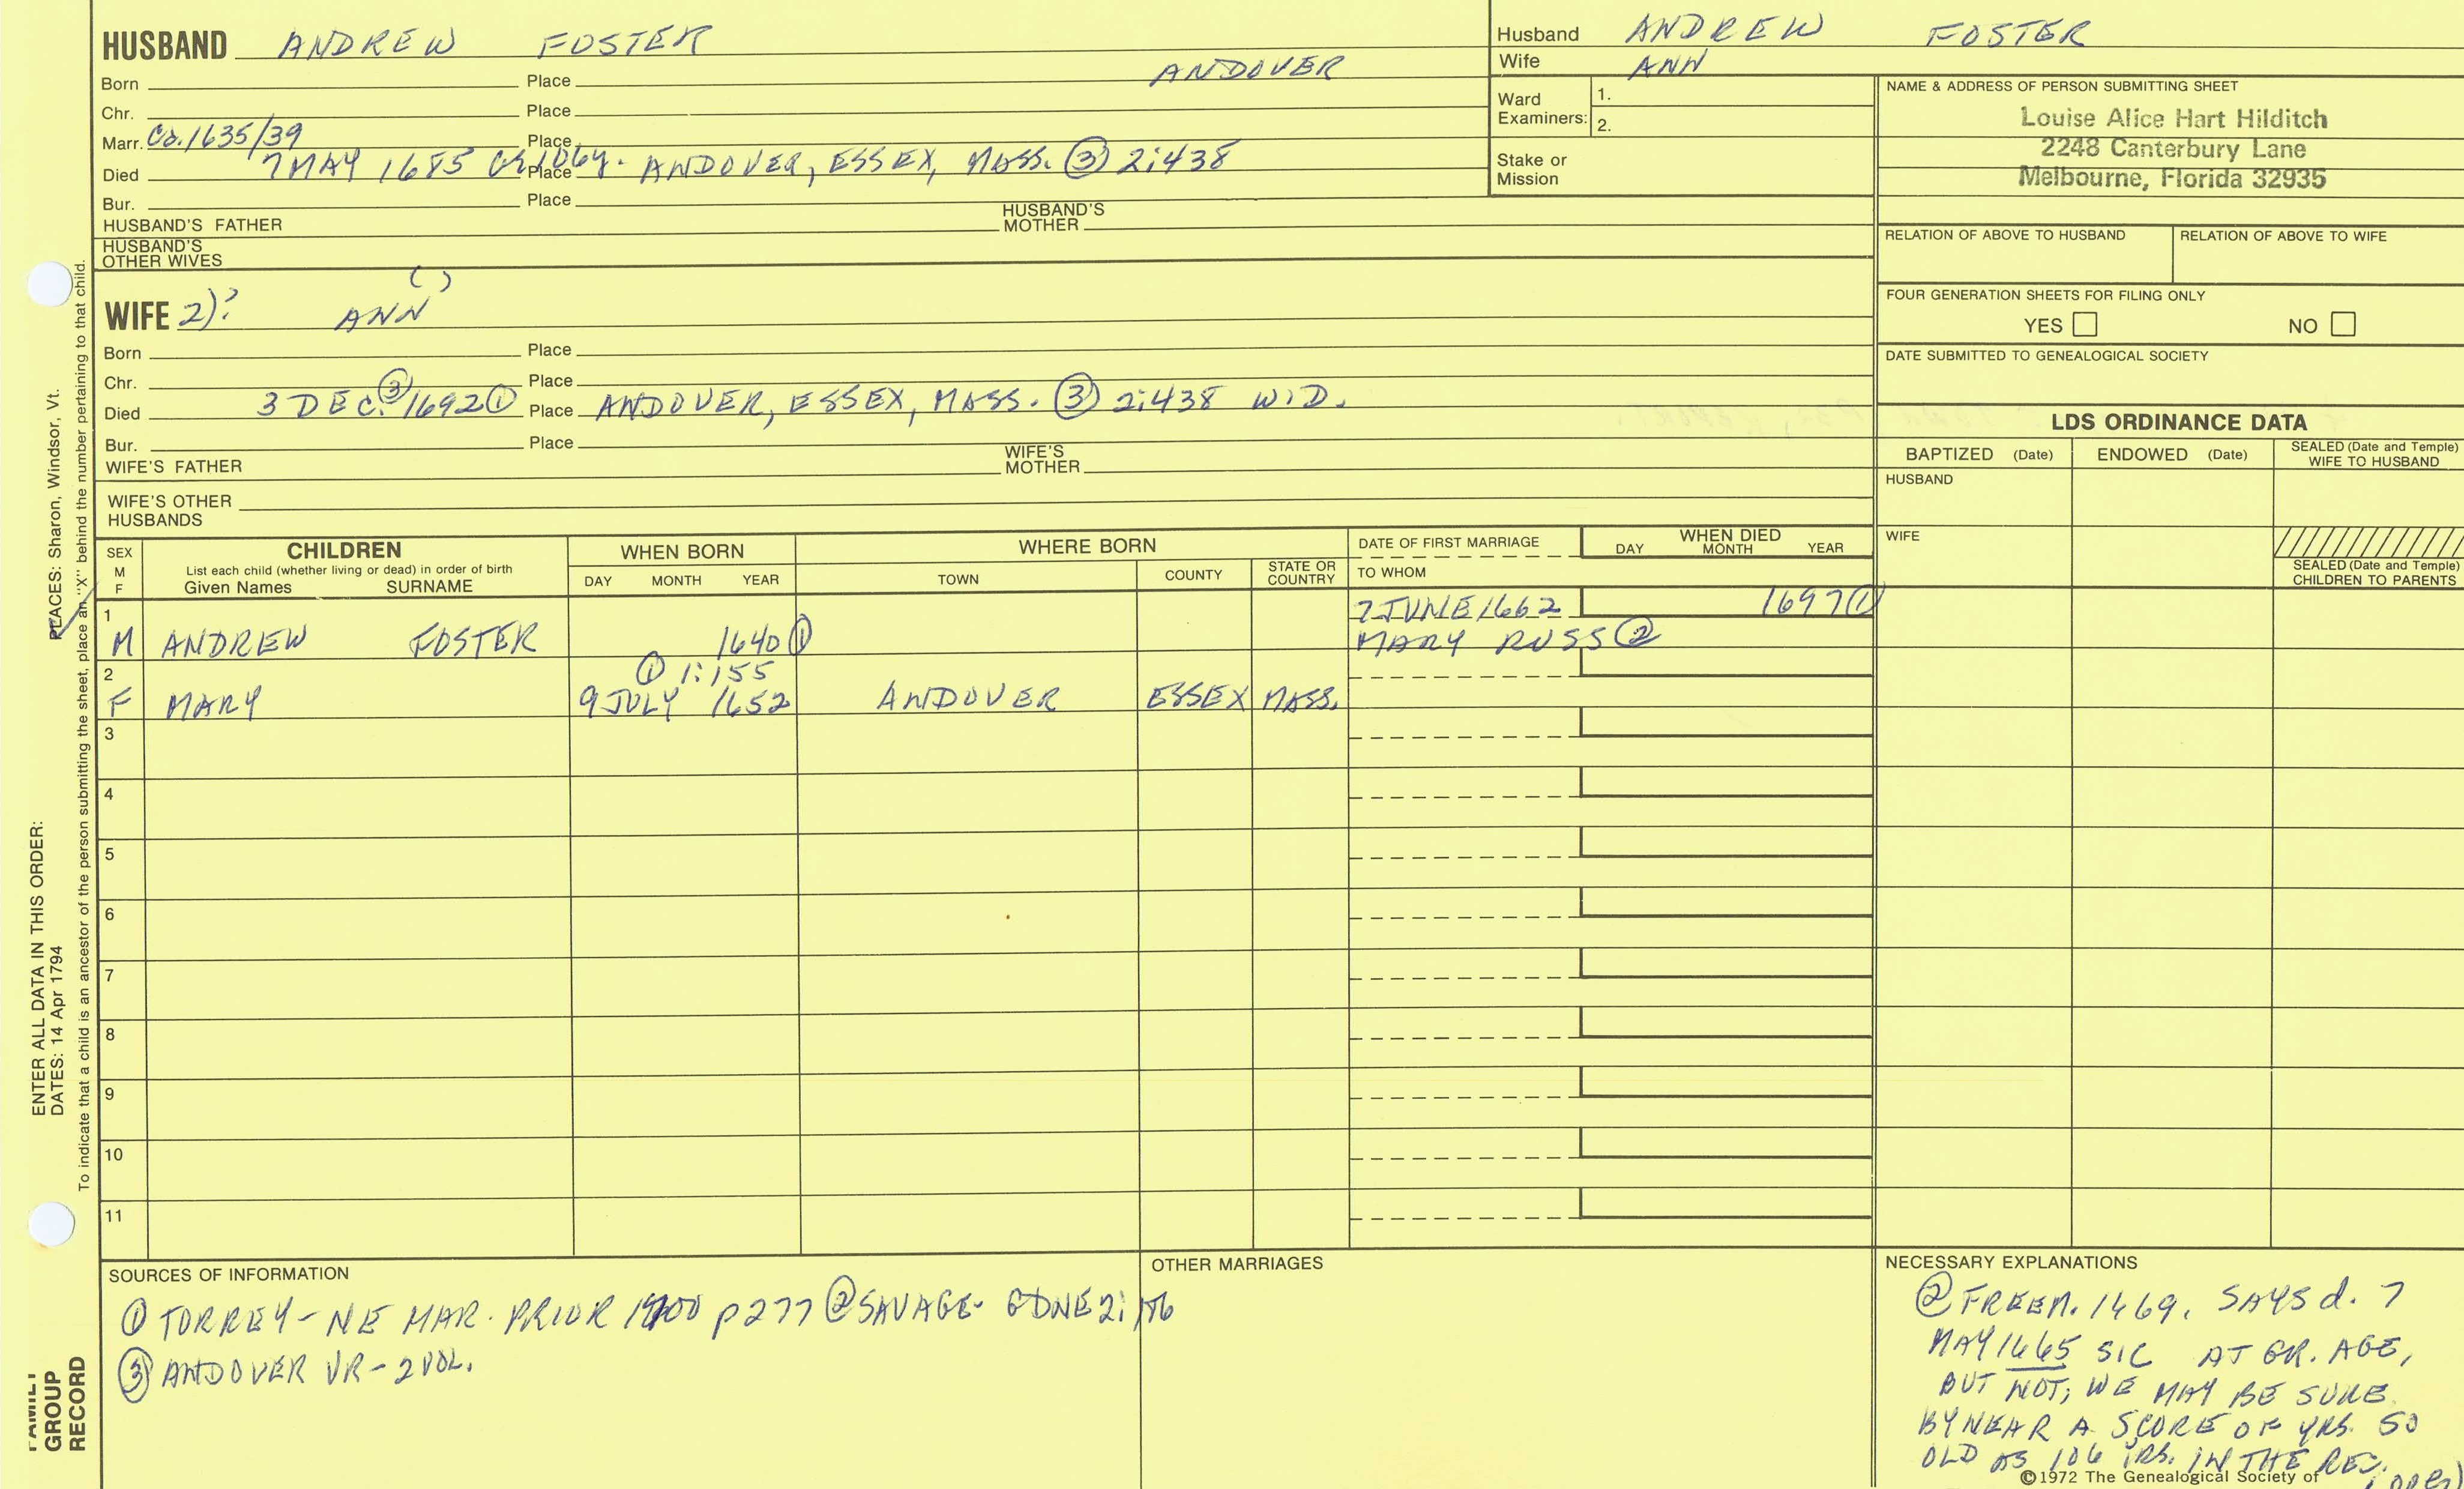 HUSBAND ANDREW FOSTER
ANDOVER
Born Place
Chr. Place
Marr. Ca. 1635/39 Place
Died 7 MAY 1685 Place ANDOVER, ESSEX, MASS. ③ 2:438
Bur. Place
HUSBAND'S FATHER HUSBAND'S MOTHER
HUSBAND'S OTHER WIVES
Husband ANDREW FOSTER
Wife ANN
Ward Examiners: 1.
2.
Stake or Mission
NAME & ADDRESS OF PERSON SUBMITTING SHEET
Louise Alice Hart Hilditch
2248 Canterbury Lane
Melbourne, Florida 32935
RELATION OF ABOVE TO HUSBAND RELATION OF ABOVE TO WIFE
FOUR GENERATION SHEETS FOR FILING ONLY
YES NO
DATE SUBMITTED TO GENEALOGICAL SOCIETY
( )
WIFE 2)? ANN
Born Place
Chr. Place
Died 3 DEC. ③ 1692 ① Place ANDOVER, ESSEX, MASS. ③ 2:438 WID.
Bur. Place
WIFE'S FATHER WIFE'S MOTHER
WIFE'S OTHER HUSBANDS
LDS ORDINANCE DATA
BAPTIZED (Date) ENDOWED (Date) SEALED (Date and Temple) WIFE TO HUSBAND
HUSBAND
WIFE
SEALED (Date and Temple) CHILDREN TO PARENTS
SEX M F
CHILDREN
List each child (whether living or dead) in order of birth
Given Names SURNAME
WHEN BORN
DAY MONTH YEAR
WHERE BORN
TOWN COUNTY STATE OR COUNTRY
DATE OF FIRST MARRIAGE
TO WHOM
WHEN DIED
DAY MONTH YEAR
1 7 JUNE 1662 1697 ①
M ANDREW FOSTER 1640 ① MARY RUSS ②
2 ① 1:155
F MARY 9 JULY 1652 ANDOVER ESSEX MASS.
3
4
5
6
7
8
9
10
11
SOURCES OF INFORMATION
① TORREY - NE MAR. PRIOR 1700 p 277 ② SAVAGE - GDNE 2:
③ ANDOVER VR - 2 VOL.
OTHER MARRIAGES
NECESSARY EXPLANATIONS
② FREEM. 1469. SAYS d. 7
MAY 1665 SIC AT GR. AGE,
BUT NOT; WE MAY BE SURE
BY NEAR A SCORE OF YRS. SO
OLD AS 106 YRS. IN THE REC.
©1972 The Genealogical Society of
ENTER ALL DATA IN THIS ORDER:
DATES: 14 Apr 1794
PLACES: Sharon, Windsor, Vt.
To indicate that a child is an ancestor of the person submitting the sheet, place an "X" behind the number pertaining to that child.
FAMILY
GROUP
RECORD